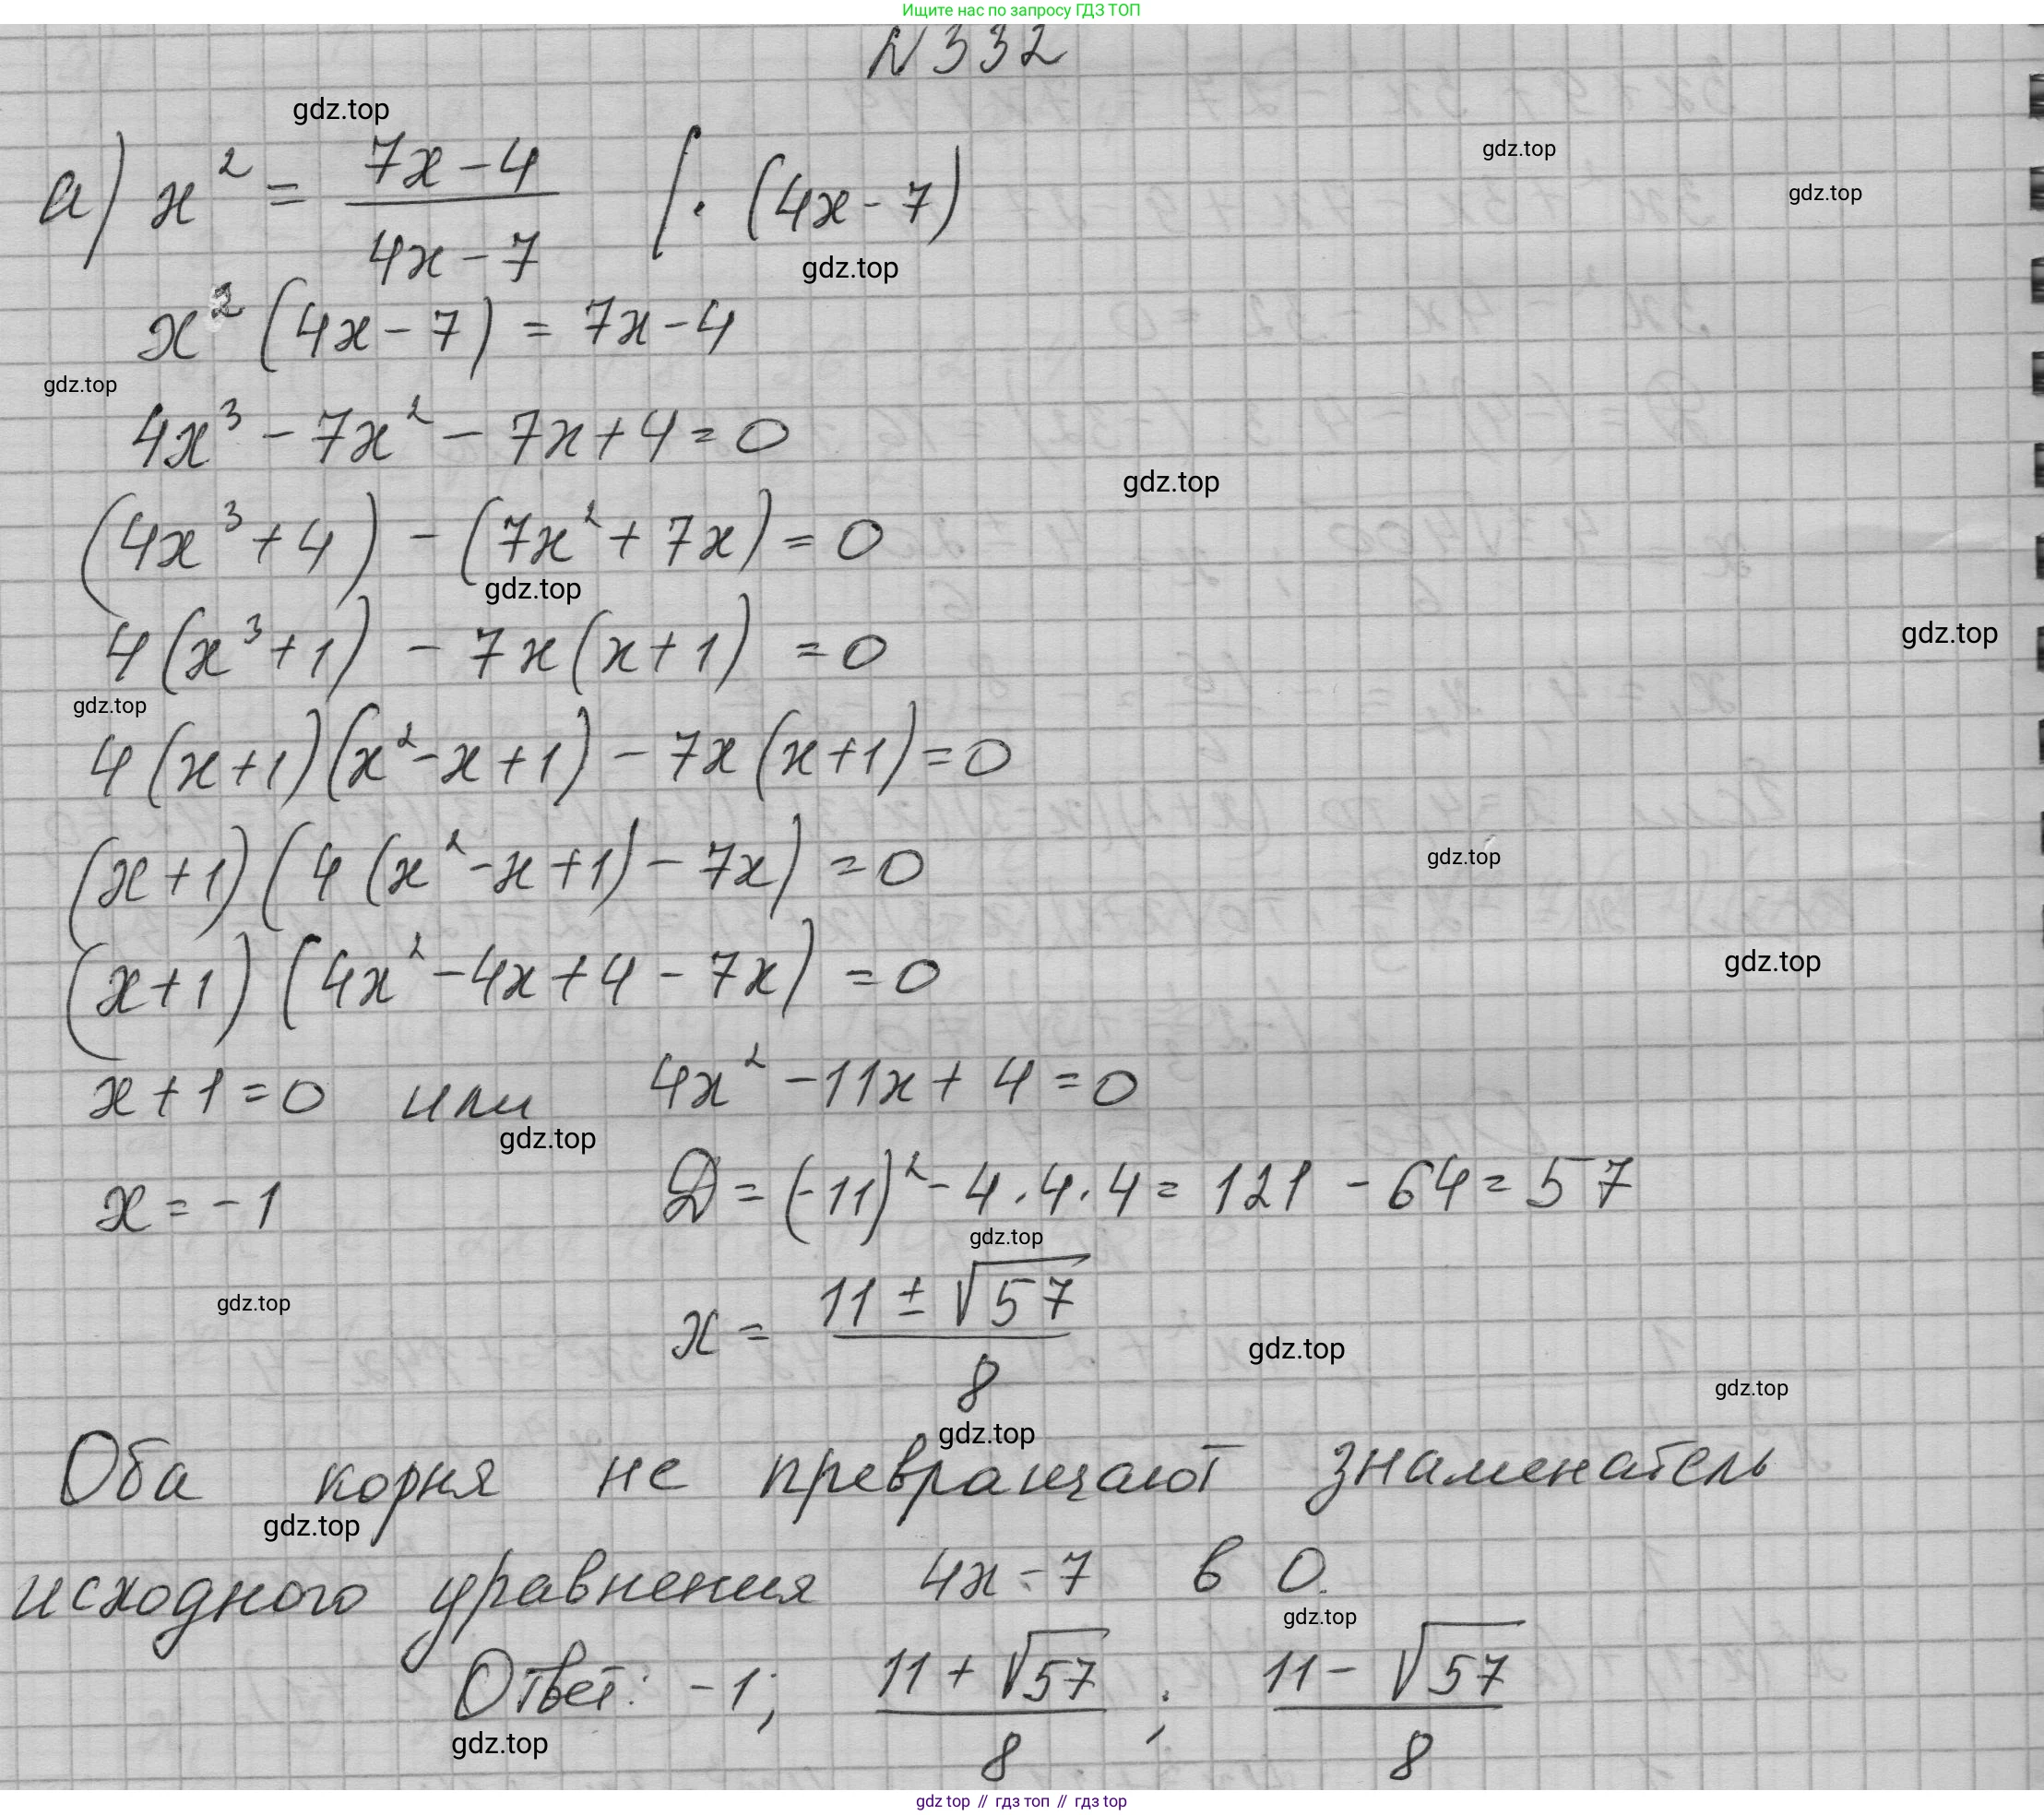 Ищите нас по запросу ГДЗ ТОП
N 332
gdz.top
gdz.top
gdz.top
а) x² = (7x - 4)/(4x - 7) | · (4x - 7)
gdz.top
x² (4x - 7) = 7x - 4
gdz.top
4x³ - 7x² - 7x + 4 = 0
gdz.top
(4x³ + 4) - (7x² + 7x) = 0
gdz.top
gdz.top
4(x³ + 1) - 7x(x + 1) = 0
gdz.top
4(x + 1)(x² - x + 1) - 7x(x + 1) = 0
gdz.top
(x + 1)(4(x² - x + 1) - 7x) = 0
gdz.top
(x + 1)(4x² - 4x + 4 - 7x) = 0
x + 1 = 0 или 4x² - 11x + 4 = 0
gdz.top
x = -1 D = (-11)² - 4 · 4 · 4 = 121 - 64 = 57
gdz.top
gdz.top
x = (11 ± √57)/8
gdz.top
gdz.top
gdz.top
Оба корня не превращают знаменатель
gdz.top
исходного уравнения 4x - 7 в 0.
gdz.top
Ответ: -1; (11 + √57)/8 ; (11 - √57)/8
gdz.top
gdz top // гдз топ // гдз top